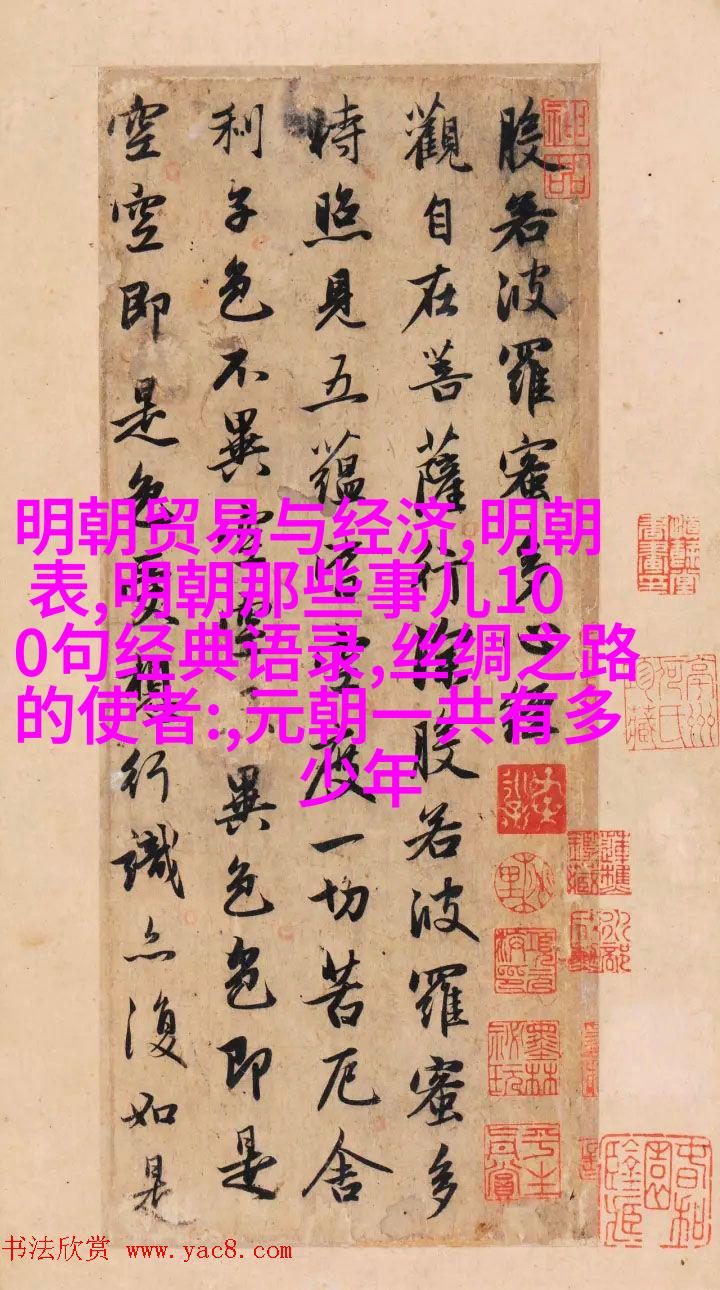 般若波羅蜜多心經
觀自在菩薩行深般若波羅蜜多
時照見五蘊皆空度一切苦厄舍
利子色不異空空不異色色即是
空空即是色受想行識亦復如是
明朝贸易与经济,明朝
表,明朝那些事儿10
0句经典语录,丝绸之路
的使者:,元朝一共有多
少年
神品
书法欣赏 www.yac8.com